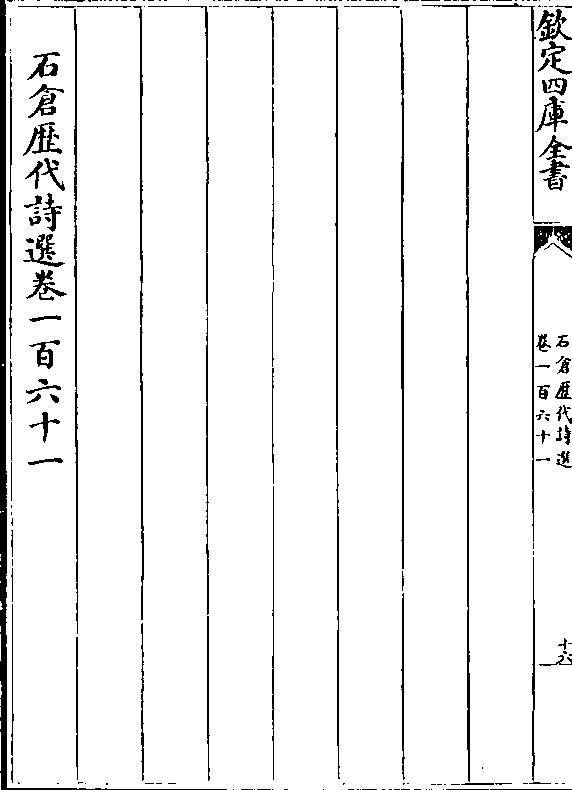 欽定四庫全書
石倉歷代詩選
卷一百六十一
十六
石倉歷代詩選卷一百六十一